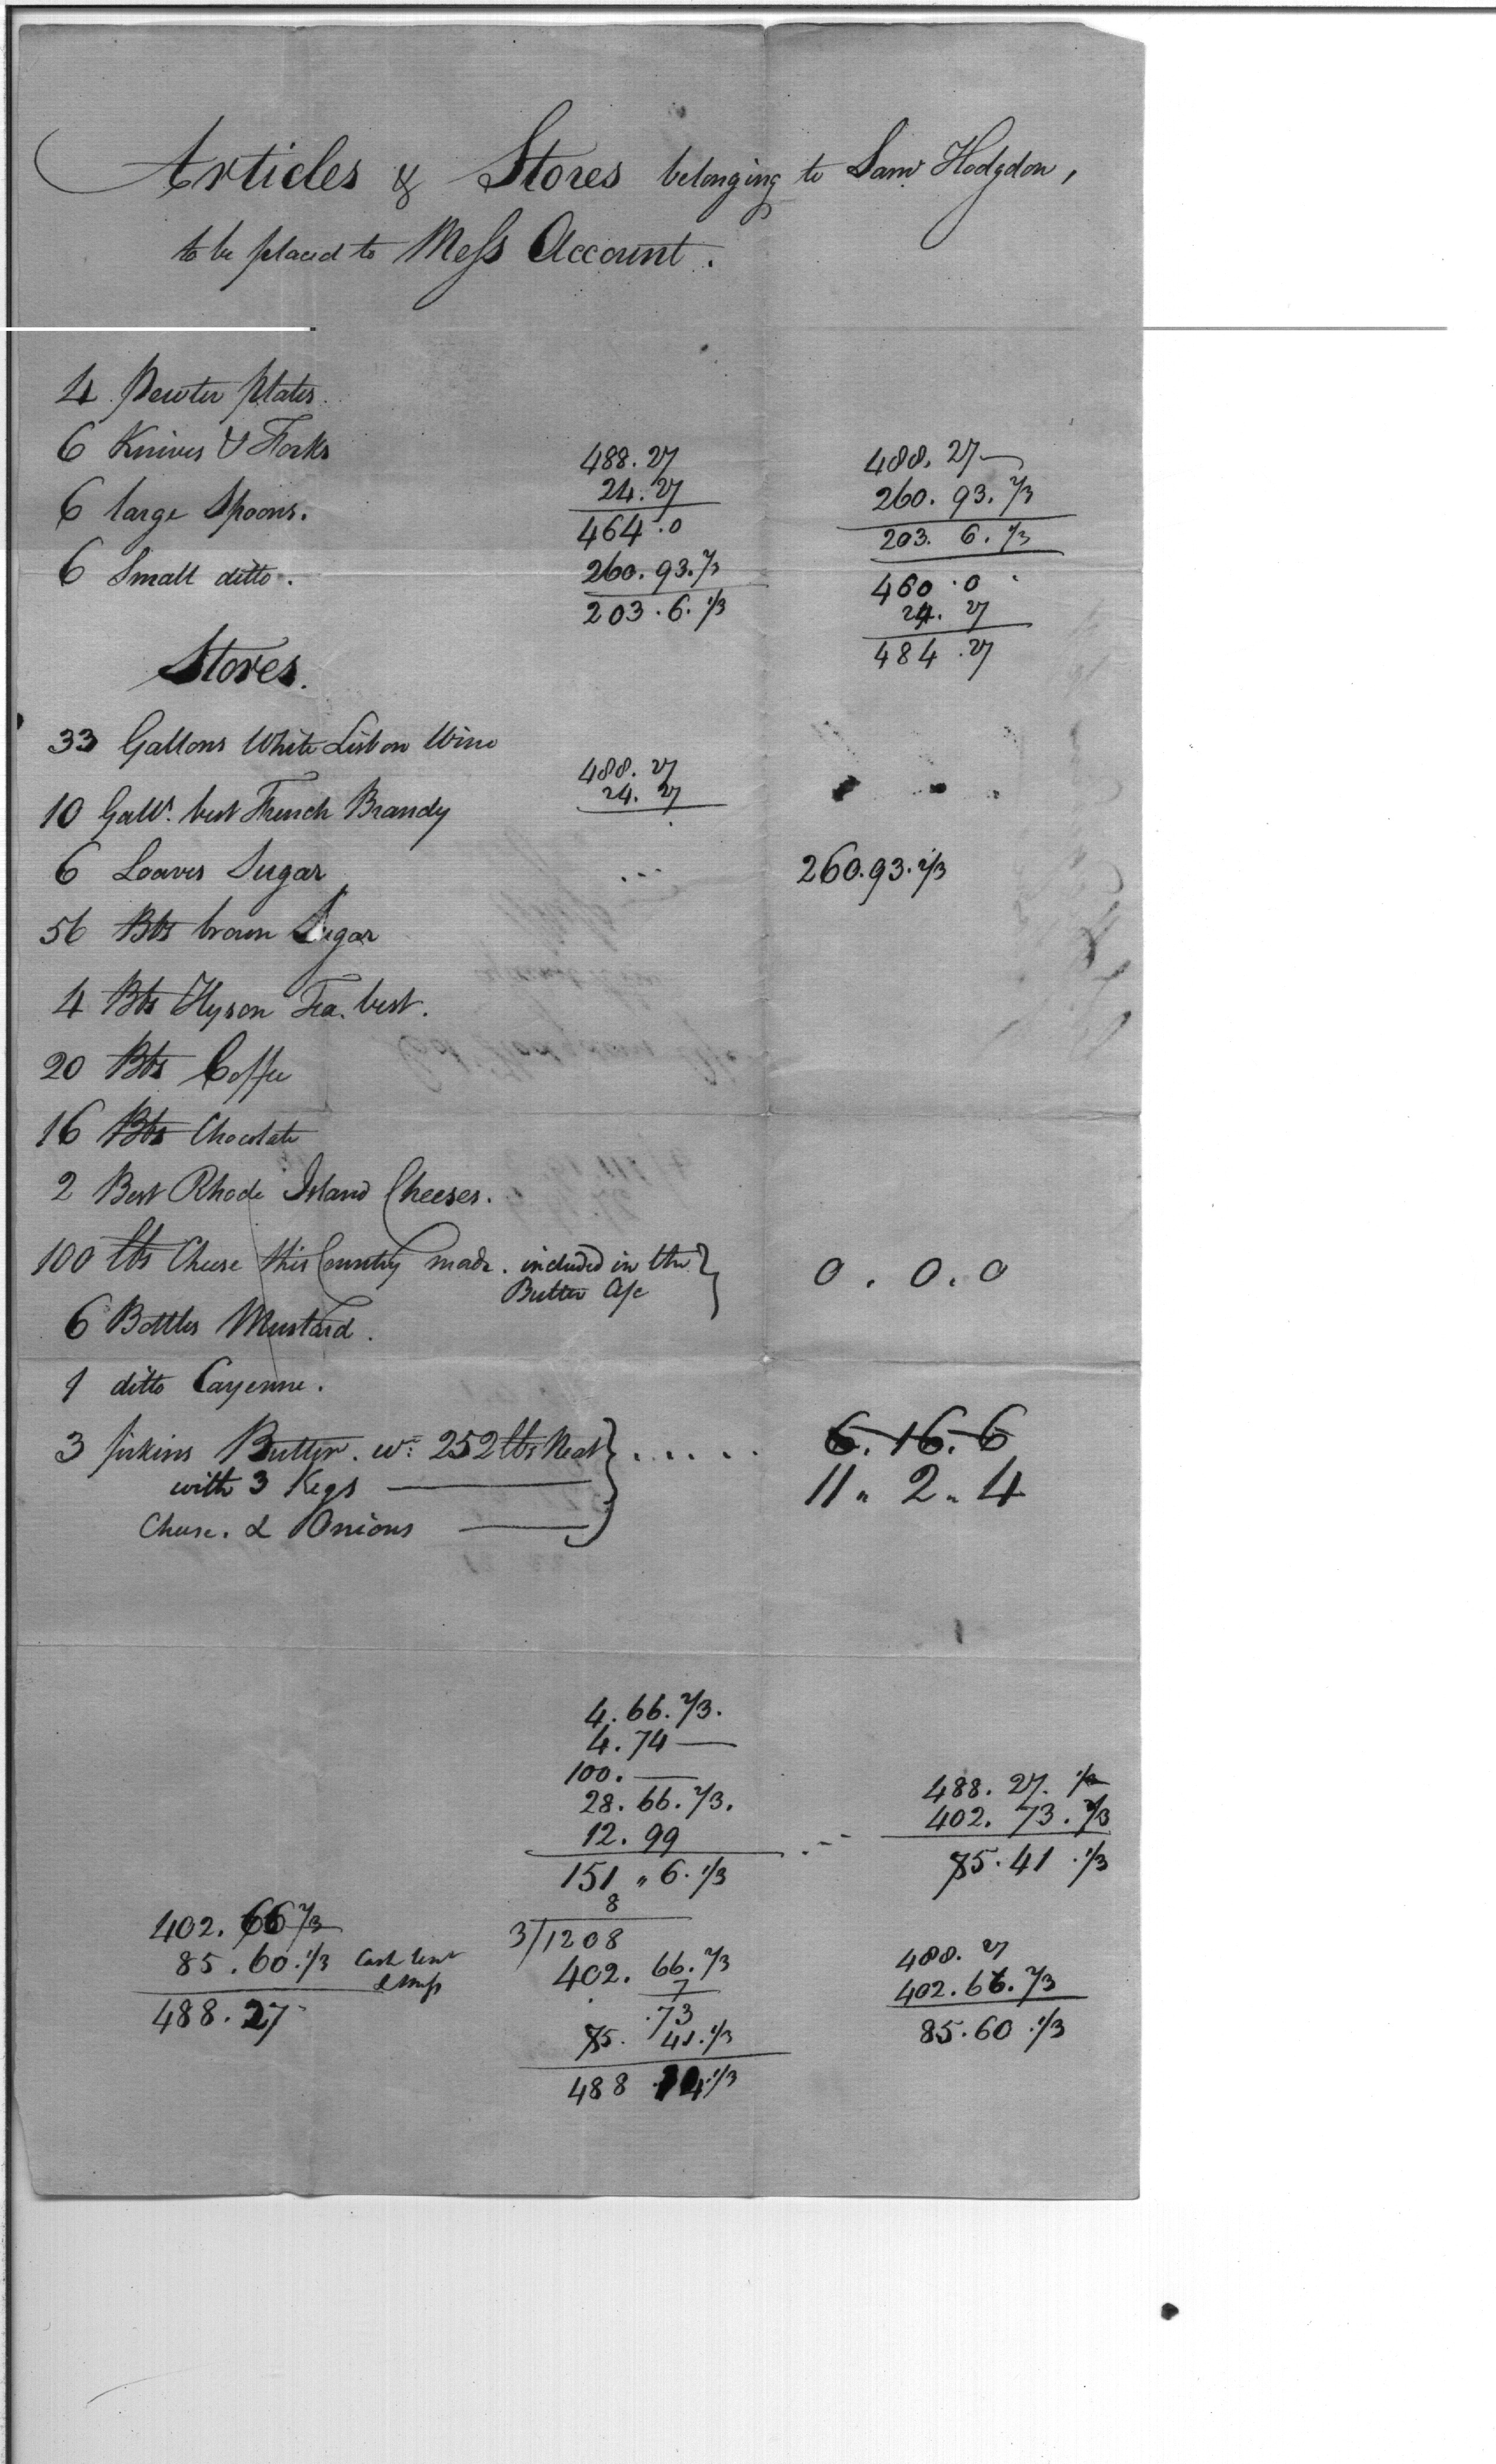 Articles & Stores belonging to Saml Hodgdon,
to be placed to Mess Account.
4 Pewter plates.
6 Knives & Forks
6 large Spoons.
6 Small ditto.
488.27
24.27
464.0
260.93.2/3
203.6.1/3
488.27
260.93.2/3
203.6.1/3
460.0
24.27
484.27
Stores.
33 Gallons White Lisbon Wine
10 Galls. best French Brandy
6 Loaves Sugar
56 lbs brown Sugar
4 lbs Hyson Tea. best.
20 lbs Coffee
16 lbs Chocolate
488.27
24.27
260.93.2/3
2 Best Rhode Island Cheeses.
100 lbs Cheese this Country made. included in the
Butter A/c
0.0.0
6 Bottles Mustard.
1 ditto Cayenne.
3 firkins Butter. wt. 252 lbs Neat
with 3 Kegs
Cheese. & Onions
6.16.6
11.2.4
4.66.2/3.
4.74
100.
28.66.2/3.
12.99
151.6.1/3
8
3/1208
402.66.2/3
7
.73
75.41.1/3
488
488.27.
402.73.2/3
75.41.1/3
402.66 2/3
85.60.1/3 Cash lent
488.27
488.27
402.66.2/3
85.60.1/3